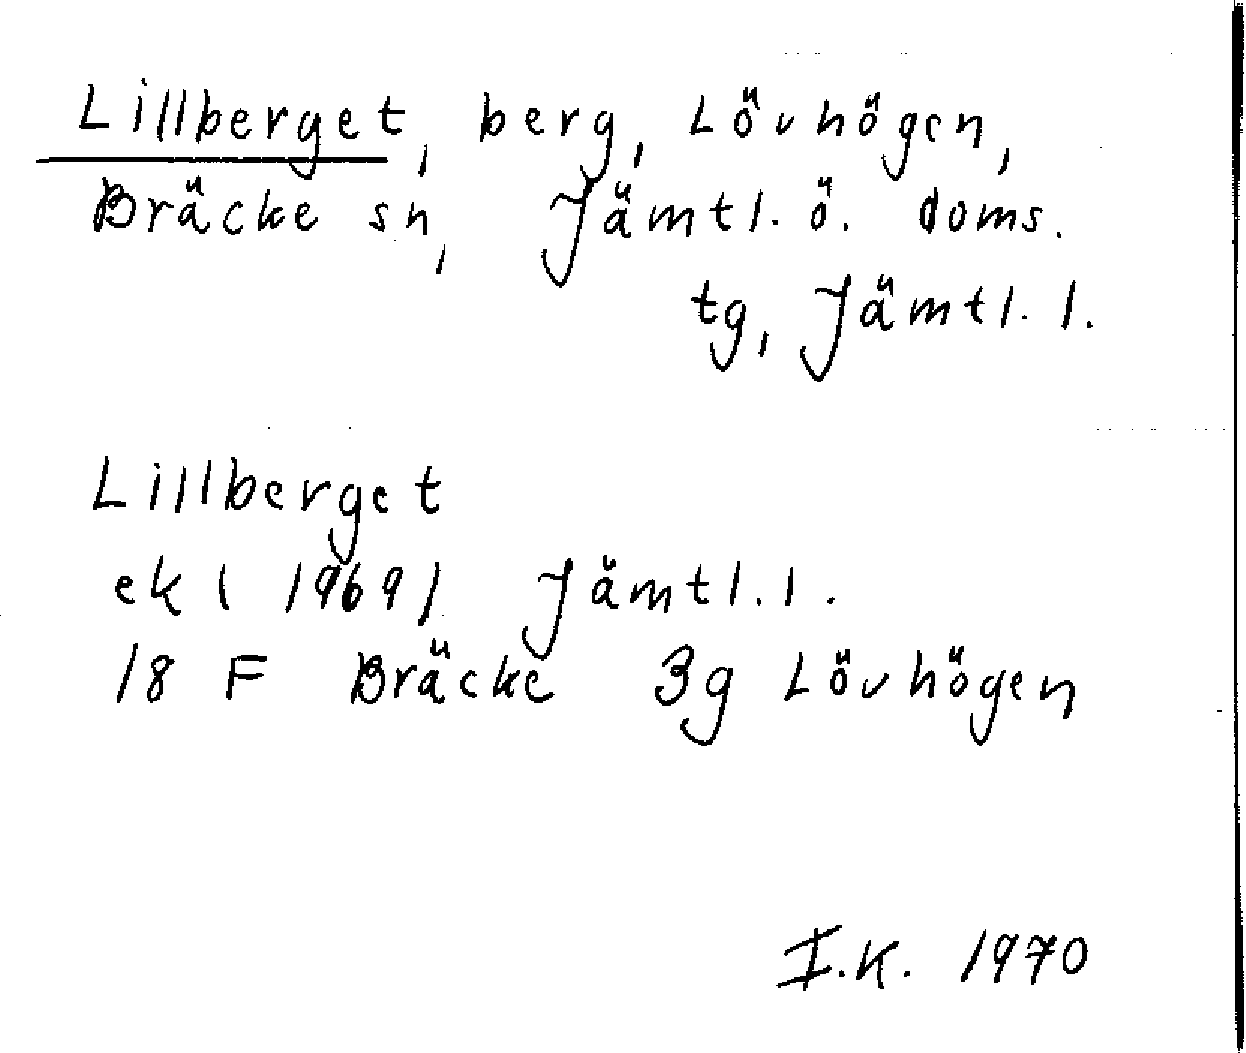 Lillberget, berg, Lövhögen,
Bräcke sn, Jämtl. ö. doms.
tg, Jämtl. l.
Lillberget
ek (1969) Jämtl. l.
18 F Bräcke 3g Lövhögen
I.K. 1970